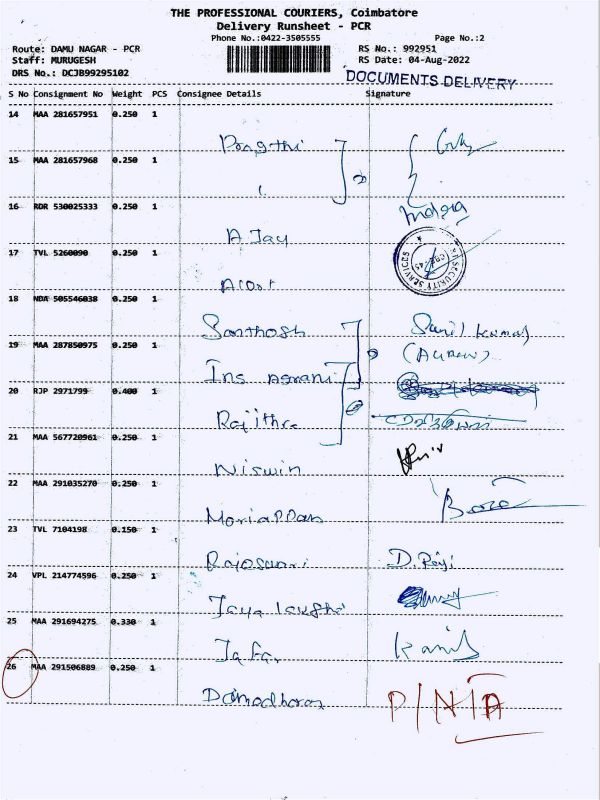 THE PROFESSIONAL COURIERS, Coimbatore
Delivery Runsheet - PCR
Phone No.:0422-3505555 Page No.:2
Route: DAMU NAGAR - PCR RS No.: 992951
Staff: MURUGESH RS Date: 04-Aug-2022
DRS No.: DCJB99295102 DOCUMENTS DELIVERY
S No Consignment No Weight PCS Consignee Details Signature
14 MAA 281657951 0.250 1
15 MAA 281657968 0.250 1
16 RDR 530025333 0.250 1
A Jay
17 TVL 5260090 0.250 1
SECURITY SERVICES
18 NDA 505546038 0.250 1
Santhosh Sunil Kumar
19 MAA 287850975 0.250 1
Ins
20 RJP 2971799 0.400 1
Rajithra
21 MAA 567720961 0.250 1
Niswin
22 MAA 291035270 0.250 1
Mariappan
23 TVL 7104198 0.150 1
Rajeswari
24 VPL 214774596 0.250 1
Jaya
25 MAA 291694275 0.330 1
Jafar
26 MAA 291506889 0.250 1
Damodharan P/N/A